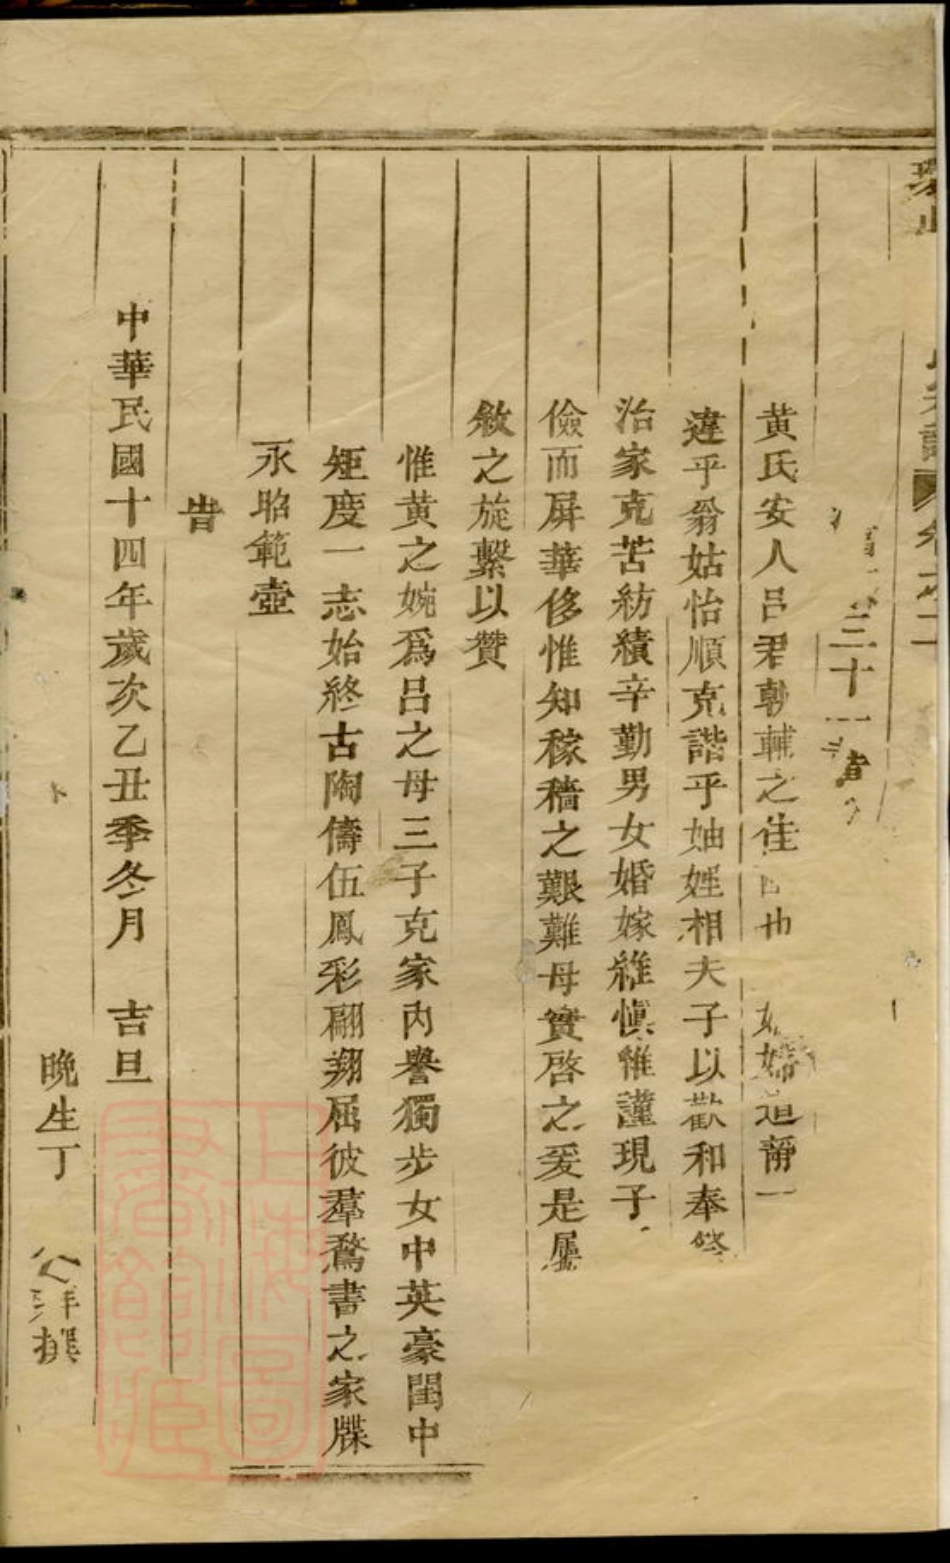 卷之二
三十
黃氏安人呂君朝輔之佳也婦道靜一
違乎翁姑怡順克諧乎妯娌相夫子以歡和奉
治家克苦紡績辛勤男女婚嫁維慎惟謹現子
儉而屏華侈惟知稼穡之艱難母實啓之爰是屬
敘之旋繫以贊
惟黃之婉為呂之母三子克家內譽獨步女中英豪閨中
矩度一志始終古陶儔伍鳳彩翩翔屈彼羣鶩書之家牒
永昭範壼
旹
中華民國十四年歲次乙丑季冬月 吉旦
晚生丁 祥撰
上海圖書館藏